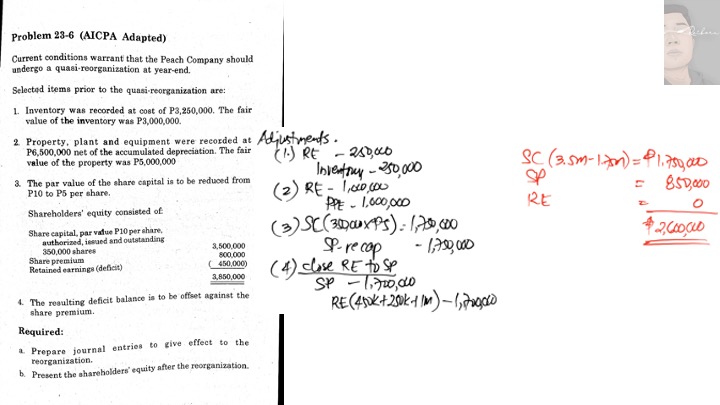 Problem 23-6 (AICPA Adapted)
Current conditions warrant that the Peach Company should
undergo a quasi-reorganization at year-end.
Selected items prior to the quasi-reorganization are:
1. Inventory was recorded at cost of P3,250,000. The fair
value of the inventory was P3,000,000.
2. Property, plant and equipment were recorded at
P6,500,000 net of the accumulated depreciation. The fair
value of the property was P5,000,000
3. The par value of the share capital is to be reduced from
P10 to P5 per share.
Shareholders' equity consisted of:
Share capital, par value P10 per share,
authorized, issued and outstanding
350,000 shares 3,500,000
Share premium 800,000
Retained earnings (deficit) ( 450,000)
3,850,000
4. The resulting deficit balance is to be offset against the
share premium.
Required:
a. Prepare journal entries to give effect to the
reorganization.
b. Present the shareholders' equity after the reorganization.
Adjustments.
(1.) RE - 250,000
Inventory - 250,000
(2) RE - 1,000,000
PPE - 1,000,000
(3) SC (350,000 x P5) - 1,750,000
SP-recap - 1,750,000
(4) close RE to SP
SP - 1,700,000
RE (450k+250k+1M) - 1,700,000
SC (3.5M-1.75M) = ₱1,750,000
SP = 850,000
RE = 0
₱2,600,000